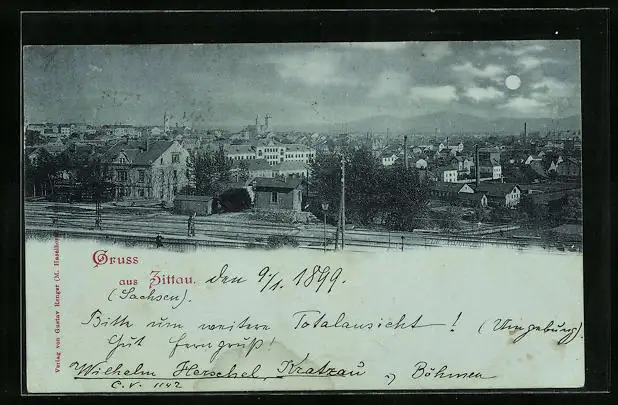 Gruss
aus Zittau. den 9/1. 1899.
(Sachsen).
Bitte um weitere Totalansicht! (Umgebung).
Gut Ferngruß!
Wilhelm Herschel, Kratzau, Böhmen
C. V. 1142
Verlag von Gustav Renger (M.